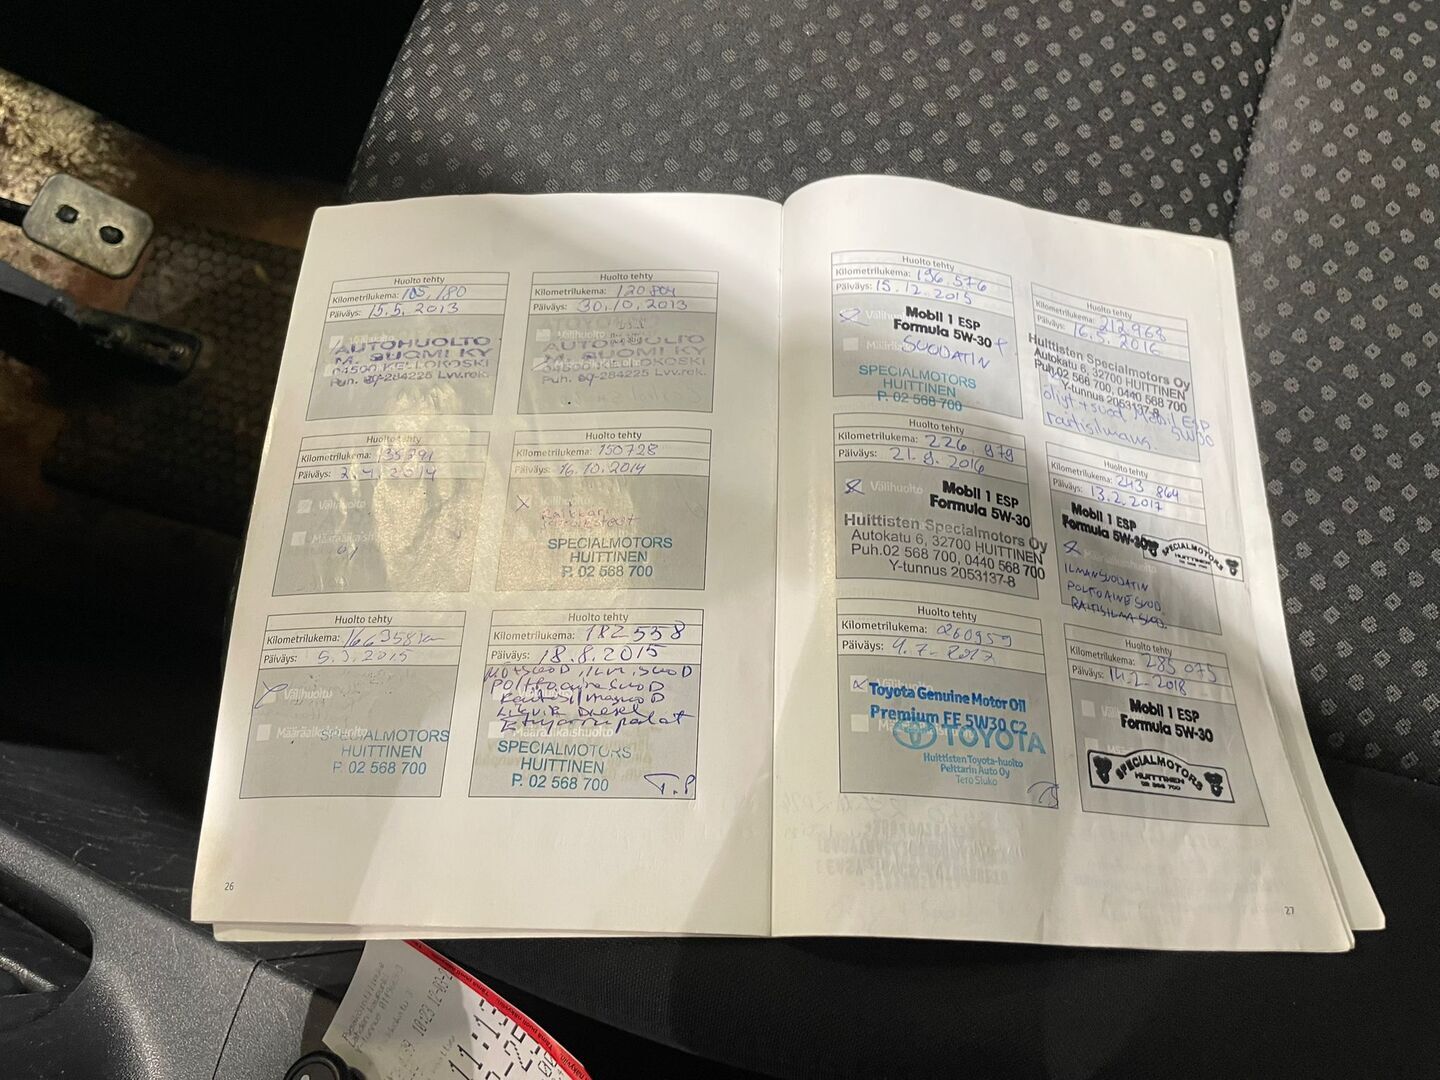 Huolto tehty
Kilometrilukema: 105.180
Päiväys: 15.5.2013
AUTOHUOLTO
M. SUOMI KY
04500 KELLOKOSKI
Puh. 09-284225 Lvv.rek.
Huolto tehty
Kilometrilukema: 120804
Päiväys: 30.10.2013
Välihuolto
AUTOHUOLTO
M. SUOMI KY
04500 KELLOKOSKI
Puh. 09-284225 Lvv.rek.
Huolto tehty
Kilometrilukema: 135291
Päiväys: 2.4.2014
Välihuolto
Määräaikaishuolto
Huolto tehty
Kilometrilukema: 150728
Päiväys: 16.10.2014
SPECIALMOTORS
HUITTINEN
P. 02 568 700
Huolto tehty
Kilometrilukema: 166358km
Päiväys: 5.3.2015
Välihuolto
Määräaikaishuolto
SPECIALMOTORS
HUITTINEN
P. 02 568 700
Huolto tehty
Kilometrilukema: 182558
Päiväys: 18.8.2015
Määräaikaishuolto
SPECIALMOTORS
HUITTINEN
P. 02 568 700
T.P
26
Huolto tehty
Kilometrilukema: 196.576
Päiväys: 15.12.2015
Mobil 1 ESP
Formula 5W-30 +
SUODATIN
SPECIALMOTORS
HUITTINEN
P. 02 568 700
Huolto tehty
Kilometrilukema: 212.968
Päiväys: 16.5.2016
Huittisten Specialmotors Oy
Autokatu 6, 32700 HUITTINEN
Puh.02 568 700, 0440 568 700
Y-tunnus 2053137-8
öljyt + suod. Mobil ESP
5W30
raitisilmans.
Huolto tehty
Kilometrilukema: 226.979
Päiväys: 21.9.2016
Välihuolto
Mobil 1 ESP
Formula 5W-30
Huittisten Specialmotors Oy
Autokatu 6, 32700 HUITTINEN
Puh.02 568 700, 0440 568 700
Y-tunnus 2053137-8
Huolto tehty
Kilometrilukema: 243 864
Päiväys: 13.2.2017
Mobil 1 ESP
Formula 5W-30
SPECIALMOTORS
HUITTINEN
02 568 700
ILMANSUODATIN
POLTTOAINESUOD.
RAITISILMA SUOD.
Huolto tehty
Kilometrilukema: 260959
Päiväys: 4.7.2017
Toyota Genuine Motor Oil
Premium FE 5W30 C2
TOYOTA
Huittisten Toyota-huolto
Pelttarin Auto Oy
Tero Siuko
Huolto tehty
Kilometrilukema: 285 075
Päiväys: 14.2.2018
Mobil 1 ESP
Formula 5W-30
SPECIALMOTORS
HUITTINEN
02 568 700
27